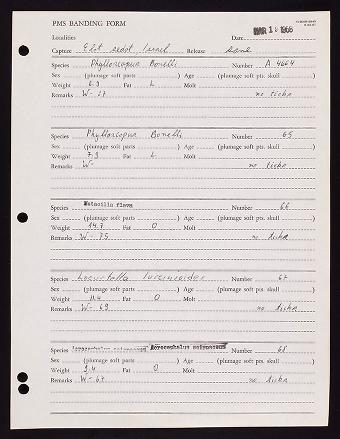 PMS BANDING FORM
Localities Date MAR 1 1968
Capture Elot, Israel Release same
Species Phylloscopus Bonelli Number A 4664
Sex (plumage soft parts ) Age (plumage soft pts. skull )
Weight 6.9 Fat L Molt
Remarks W- 57 no ticks
Species Phylloscopus Bonelli Number 65
Sex (plumage soft parts ) Age (plumage soft pts. skull )
Weight 7.9 Fat L Molt
Remarks W- no ticks
Species Motacilla flava Number 66
Sex (plumage soft parts ) Age (plumage soft pts. skull )
Weight 14.7 Fat 0 Molt
Remarks W- 75 no ticks
Species Locustella luscinioides Number 67
Sex (plumage soft parts ) Age (plumage soft pts. skull )
Weight 11.4 Fat 0 Molt
Remarks W- 69 no ticks
Species Acrocephalus scirpaceus Number 68
Sex (plumage soft parts ) Age (plumage soft pts. skull )
Weight 9.4 Fat 0 Molt
Remarks W- 67 no ticks